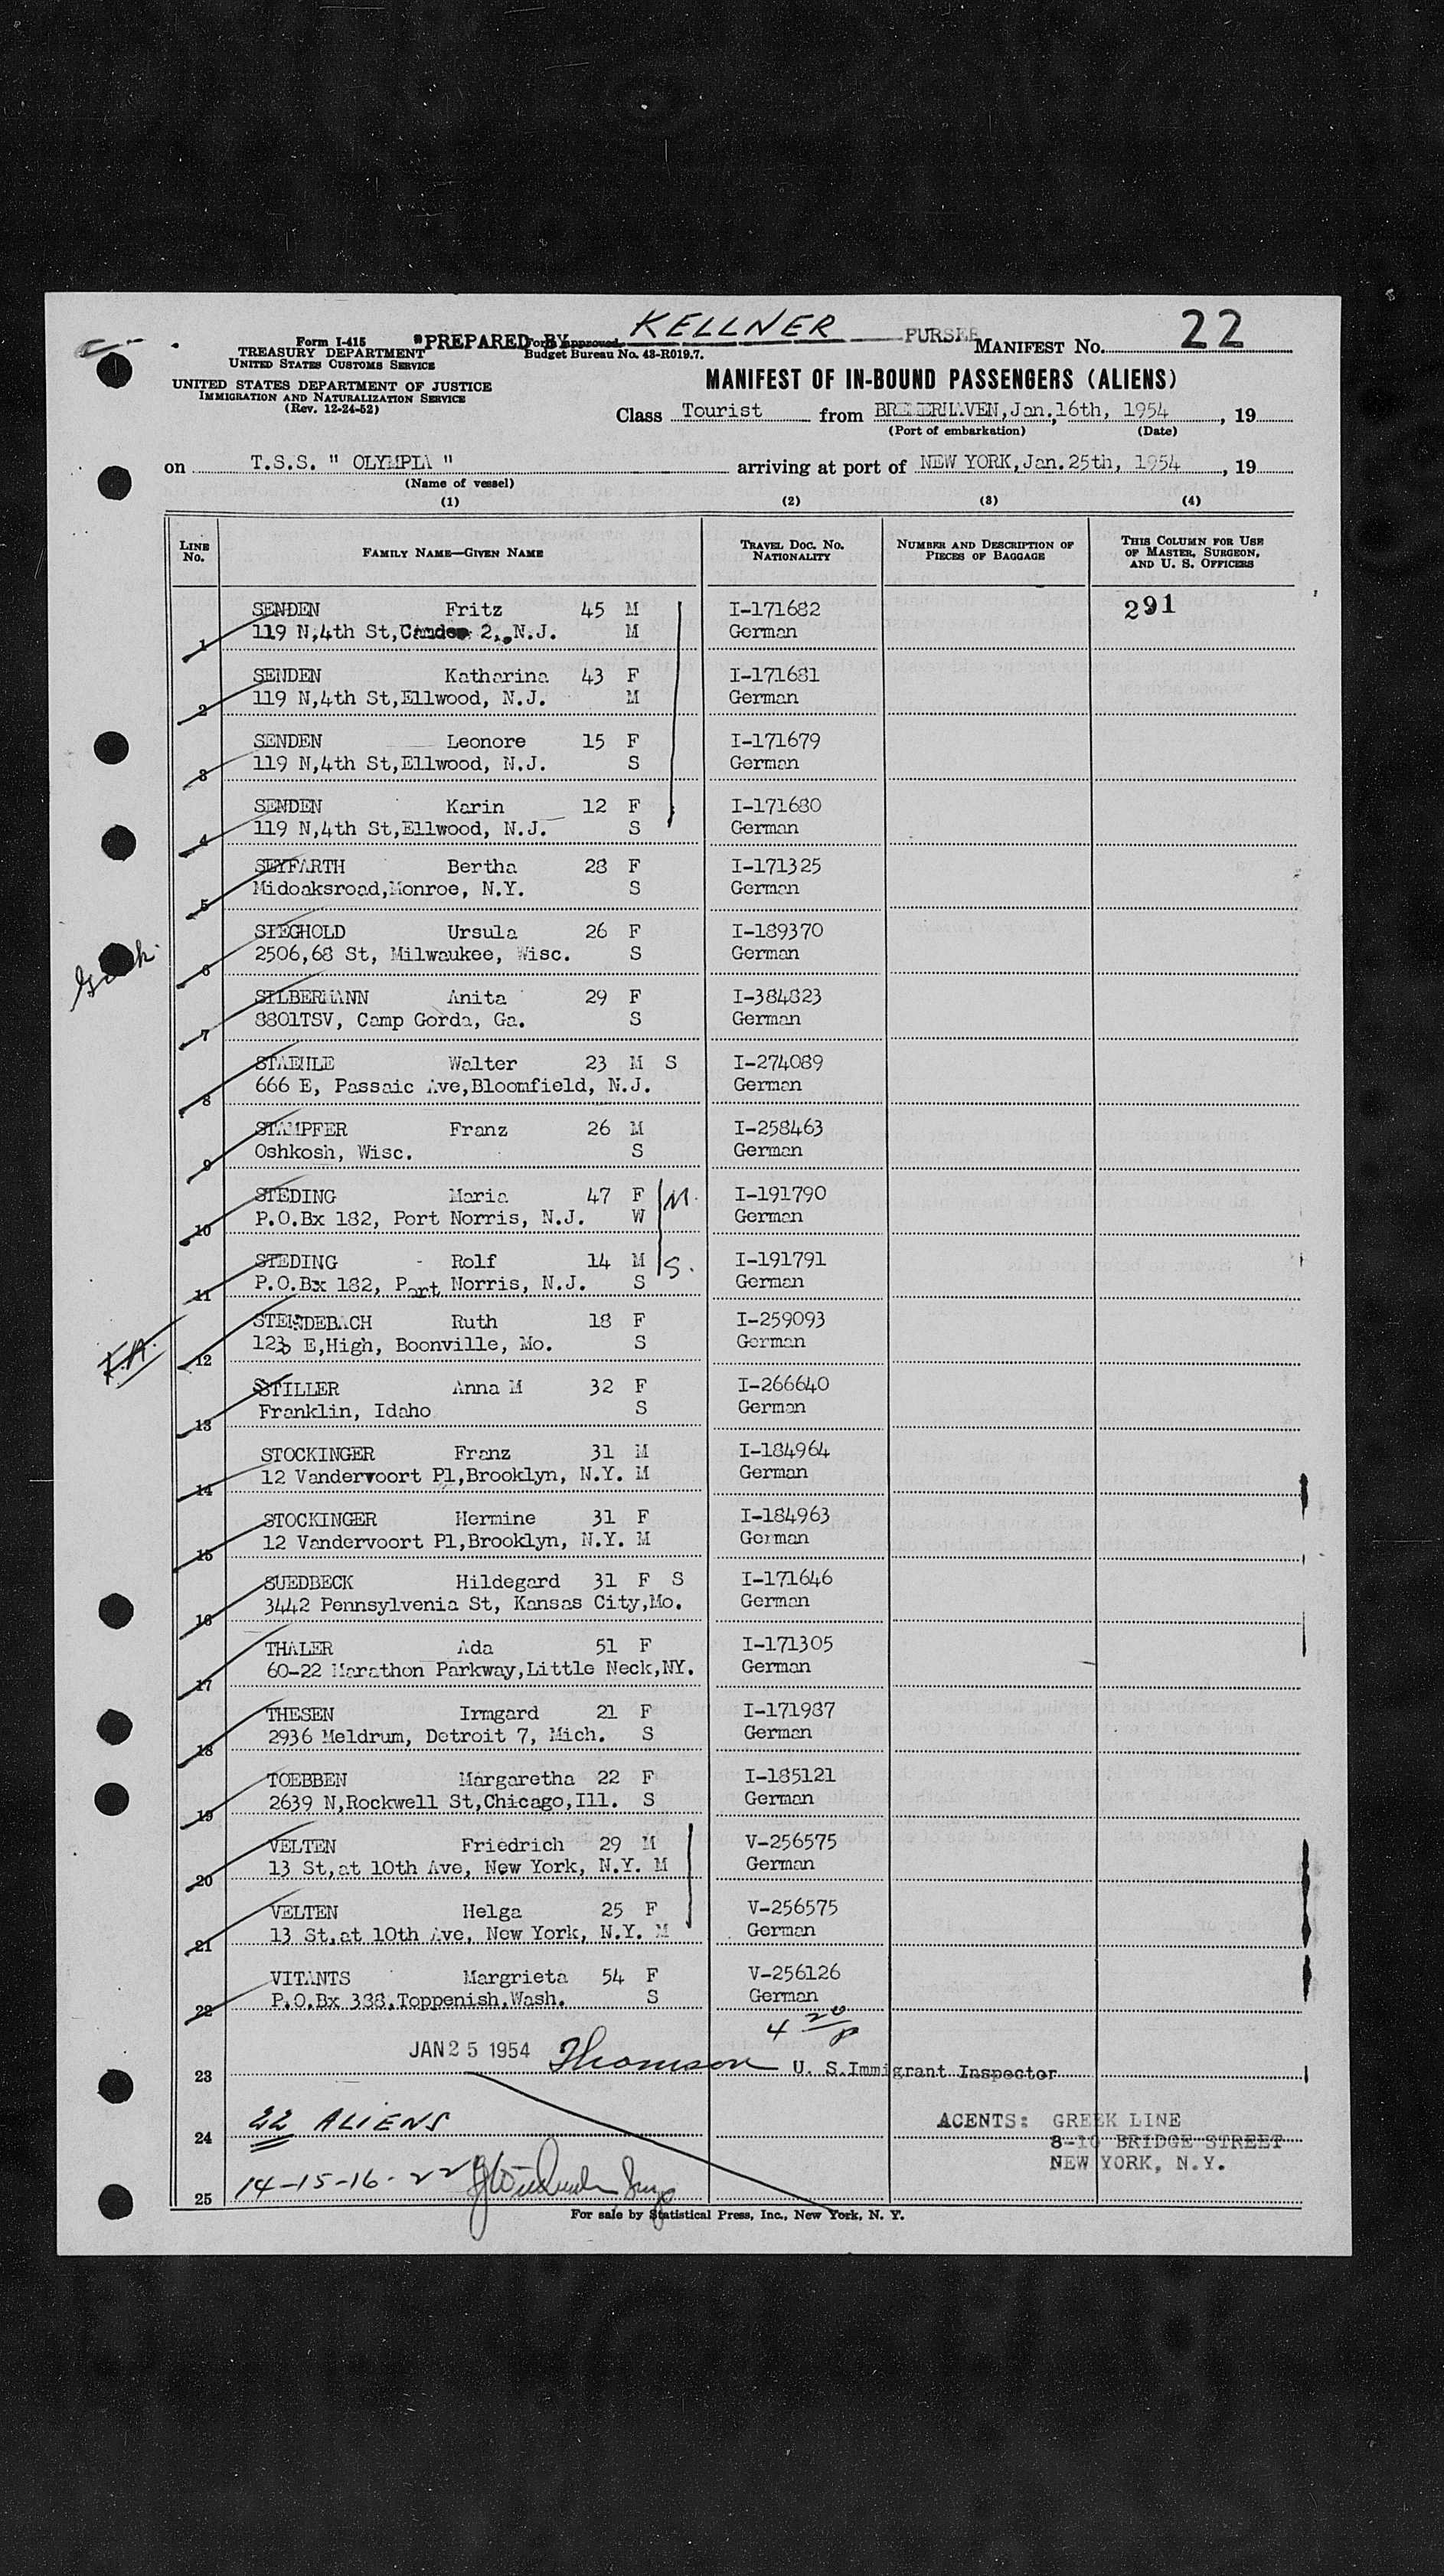 KELLNER PURSER
Form I-415
TREASURY DEPARTMENT
UNITED STATES CUSTOMS SERVICE
PREPARED BY
Form approved.
Budget Bureau No. 43-R019.7.
MANIFEST No. 22
UNITED STATES DEPARTMENT OF JUSTICE
IMMIGRATION AND NATURALIZATION SERVICE
(Rev. 12-24-52)
MANIFEST OF IN-BOUND PASSENGERS (ALIENS)
Class Tourist from BREMERHAVEN, Jan. 16th, 1954, 19
(Port of embarkation) (Date)
on T.S.S. " OLYMPIA " arriving at port of NEW YORK, Jan. 25th, 1954, 19
(Name of vessel)
(1) (2) (3) (4)
LINE No. FAMILY NAME—GIVEN NAME TRAVEL DOC. NO. NATIONALITY NUMBER AND DESCRIPTION OF PIECES OF BAGGAGE THIS COLUMN FOR USE OF MASTER, SURGEON, AND U. S. OFFICERS
SENDEN Fritz 45 M I-171682 291
1 119 N,4th St,Camden 2,.N.J. M German
SENDEN Katharina 43 F I-171681
2 119 N,4th St,Ellwood, N.J. M German
SENDEN Leonore 15 F I-171679
3 119 N,4th St,Ellwood, N.J. S German
SENDEN Karin 12 F I-171680
4 119 N,4th St,Ellwood, N.J. S German
SEYFARTH Bertha 28 F I-171325
5 Midoaksroad,Monroe, N.Y. S German
SIEGHOLD Ursula 26 F I-189370
6 2506,68 St, Milwaukee, Wisc. S German
SILBERMANN Anita 29 F I-384823
7 8801TSV, Camp Gorda, Ga. S German
STAEHLE Walter 23 M S I-274089
8 666 E, Passaic Ave,Bloomfield, N.J. German
STAMPFER Franz 26 M I-258463
9 Oshkosh, Wisc. S German
STEDING Maria 47 F M. I-191790
10 P.O.Bx 182, Port Norris, N.J. W German
STEDING - Rolf 14 M S. I-191791
11 P.O.Bx 182, Port Norris, N.J. S German
STEINDEBACH Ruth 18 F I-259093
12 123 E,High, Boonville, Mo. S German
STILLER Anna M 32 F I-266640
13 Franklin, Idaho S German
STOCKINGER Franz 31 M I-184964
14 12 Vandervoort Pl,Brooklyn, N.Y. M German
STOCKINGER Hermine 31 F I-184963
15 12 Vandervoort Pl,Brooklyn, N.Y. M German
SUEDBECK Hildegard 31 F S I-171646
16 3442 Pennsylvenia St, Kansas City,Mo. German
THALER Ada 51 F I-171305
17 60-22 Marathon Parkway,Little Neck,NY. German
THESEN Irmgard 21 F I-171987
18 2936 Meldrum, Detroit 7, Mich. S German
TOEBBEN Margaretha 22 F I-185121
19 2639 N,Rockwell St,Chicago,Ill. S German
VELTEN Friedrich 29 M V-256575
20 13 St,at 10th Ave, New York, N.Y. M German
VELTEN Helga 25 F V-256575
21 13 St,at 10th Ave, New York, N.Y. M German
VITANTS Margrieta 54 F V-256126
22 P.O.Bx 388,Toppenish,Wash. S German
4 20 P
JAN 25 1954 Thomson U. S. Immigrant Inspector
23
22 ALIENS
24
AGENTS: GREEK LINE
8-10 BRIDGE STREET
NEW YORK, N.Y.
14-15-16-22
25
For sale by Statistical Press, Inc., New York, N. Y.